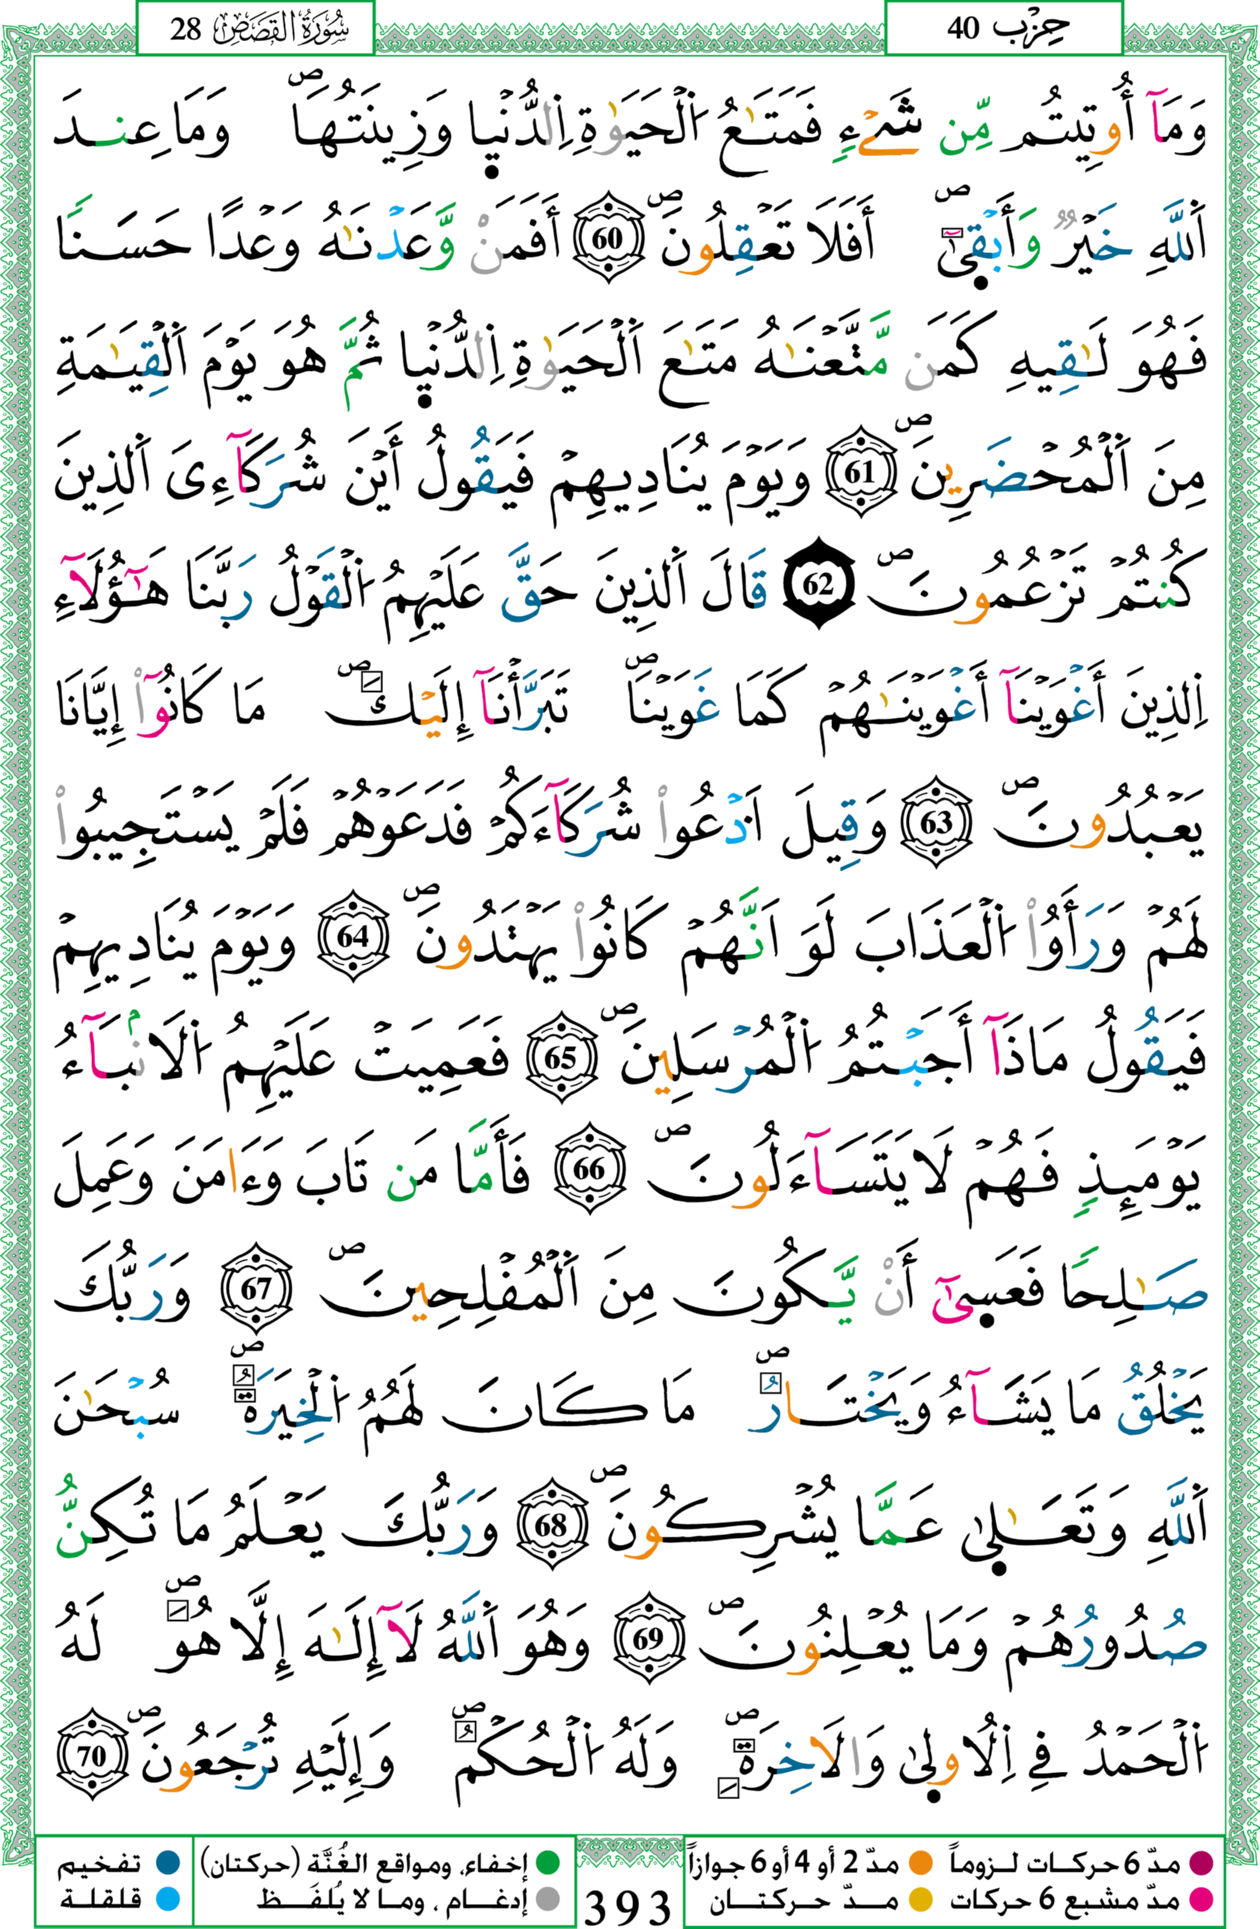 حِزْب 40
سُورَةُ الْقَصَصِ 28
وَمَآ أُوتِيتُم مِّن شَےْءٖ فَمَتَٰعُ اُ۬لْحَيَوٰةِ اِ۬لدُّنْي۪ا وَزِينَتُهَاۖ وَمَا عِندَ
اَ۬للَّهِ خَيْرٞ وَأَبْق۪ىٰٓۖ أَفَلَا تَعْقِلُونَۖ 60 أَفَمَنْ وَّعَدْنَٰهُ وَعْدًا حَسَنٗا
فَهُوَ لَٰقِيهِ كَمَن مَّتَّعْنَٰهُ مَتَٰعَ اَ۬لْحَيَوٰةِ اِ۬لدُّنْي۪ا ثُمَّ هُوَ يَوْمَ اَ۬لْقِيَٰمَةِ
مِنَ اَ۬لْمُحْضَرِينَۖ 61 وَيَوْمَ يُنَادِيهِمْ فَيَقُولُ أَيْنَ شُرَكَآءِىَ اَ۬لذِينَ
كُنتُمْ تَزْعُمُونَۖ 62 قَالَ اَ۬لذِينَ حَقَّ عَلَيْهِمُ اُ۬لْقَوْلُ رَبَّنَا هَٰٓؤُلَآءِ
اِ۬لذِينَ أَغْوَيْنَآ أَغْوَيْنَٰهُمْ كَمَا غَوَيْنَاۖ تَبَرَّأْنَآ إِلَيْكَۖ مَا كَانُوٓاْ إِيَّانَا
يَعْبُدُونَۖ 63 وَقِيلَ اَ۟دْعُواْ شُرَكَآءَكُمْ فَدَعَوْهُمْ فَلَمْ يَسْتَجِيبُواْ
لَهُمْ وَرَأَوُاْ اُ۬لْعَذَابَ لَوَ اَنَّهُمْ كَانُواْ يَهْتَدُونَۖ 64 وَيَوْمَ يُنَادِيهِمْ
فَيَقُولُ مَاذَآ أَجَبْتُمُ اُ۬لْمُرْسَلِينَۖ 65 فَعَمِيَتْ عَلَيْهِمُ اُ۬لَانۢبَآءُ
يَوْمَئِذٖ فَهُمْ لَا يَتَسَآءَلُونَۖ 66 فَأَمَّا مَن تَابَ وَءَامَنَ وَعَمِلَ
صَٰلِحٗا فَعَس۪ىٰٓ أَنْ يَّكُونَ مِنَ اَ۬لْمُفْلِحِينَۖ 67 وَرَبُّكَ
يَخْلُقُ مَا يَشَآءُ وَيَخْتَارُۖ مَا كَانَ لَهُمُ اُ۬لْخِيَرَةُۖ سُبْحَٰنَ
اَ۬للَّهِ وَتَعَٰل۪ىٰ عَمَّا يُشْرِكُونَۖ 68 وَرَبُّكَ يَعْلَمُ مَا تُكِنُّ
صُدُورُهُمْ وَمَا يُعْلِنُونَۖ 69 وَهُوَ اَ۬للَّهُ لَآ إِلَٰهَ إِلَّا هُوَۖ لَهُ
اُ۬لْحَمْدُ فِي اِ۬لُاول۪ىٰ وَالَاخِرَةِۖ وَلَهُ اُ۬لْحُكْمُۖ وَإِلَيْهِ تُرْجَعُونَۖ 70
مدّ 6 حركات لـزوماً مدّ 2 أو 4 أو 6 جوازاً
مدّ مشبع 6 حركات مـدّ حركتـان
393
إخفاء، ومواقع الغُنَّة (حركتان) تفخيم
إدغـام ، ومـا لا يُلفَـظ قلقلة